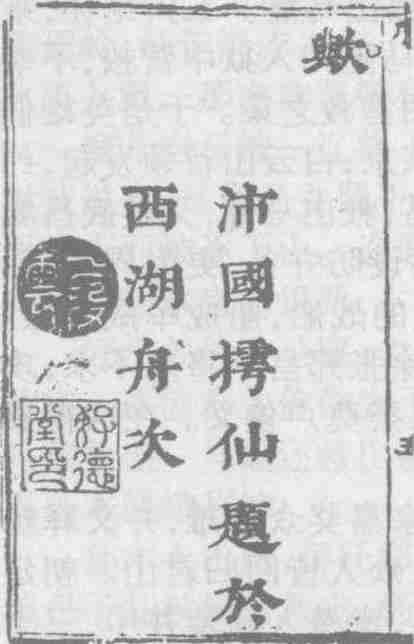 歟
沛國摴仙題於
西湖舟次
好德堂印